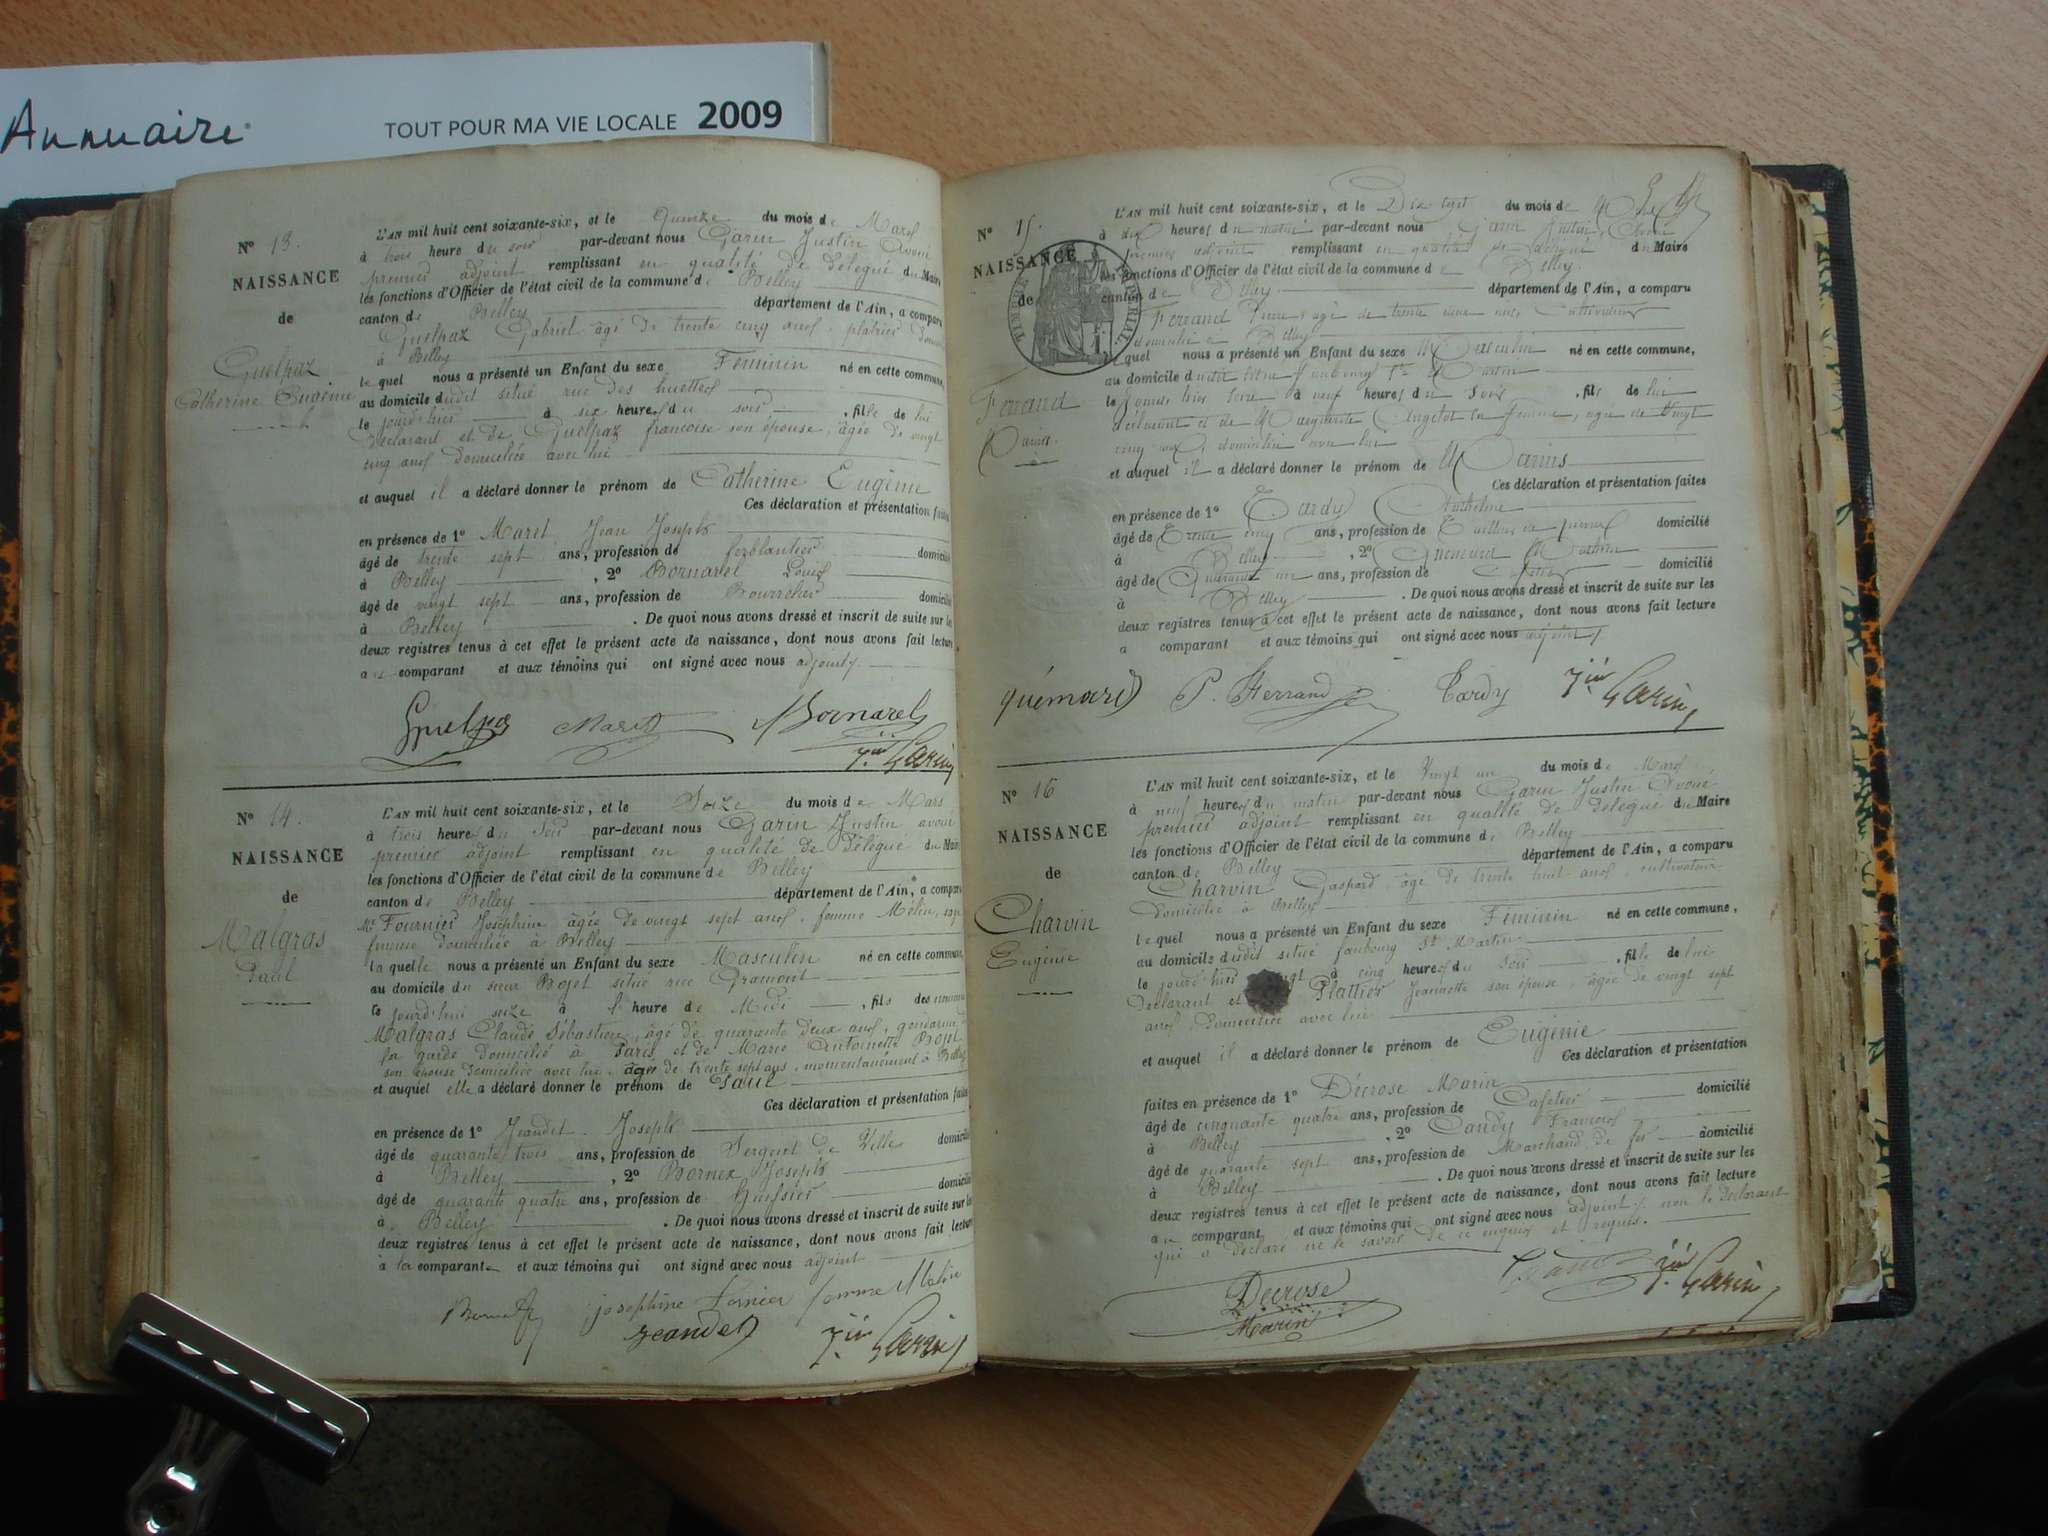 Annuaire
TOUT POUR MA VIE LOCALE 2009
N° 13.
NAISSANCE
de
Guelpaz
Catherine Eugénie
L'AN mil huit cent soixante-six, et le Quinze du mois de Mars
à trois heures du soir par-devant nous Garin Justin Avoué
premier adjoint remplissant en qualité de délégué du Maire
les fonctions d'Officier de l'état civil de la commune de Belley
canton de Belley département de l'Ain, a comparu
Guelpaz Gabriel âgé de trente cinq ans, platrier
à Belley
le quel nous a présenté un Enfant du sexe Féminin né en cette commune,
au domicile dudit situé rue des huettes
le jourd'hier à six heures du soir, fille de lui
déclarant et de Guelpaz francoise son épouse, âgée de vingt
cinq ans domiciliée avec lui
et auquel il a déclaré donner le prénom de Catherine Eugénie
Ces déclaration et présentation faites
en présence de 1° Maret Jean Joseph
âgé de trente sept ans, profession de ferblantier domicilié
à Belley, 2° Bornarel Louis
âgé de vingt sept ans, profession de Bourrelier domicilié
à Belley. De quoi nous avons dressé et inscrit de suite sur les
deux registres tenus à cet effet le présent acte de naissance, dont nous avons fait lecture
au comparant et aux témoins qui ont signé avec nous adjoint
Guelpaz Maret Bornarel
Garin
N° 14.
NAISSANCE
de
Malgras
Paul
L'AN mil huit cent soixante-six, et le Seize du mois de Mars
à trois heures du Soir par-devant nous Garin Justin avoué
premier adjoint remplissant en qualité de Délégué du Maire
les fonctions d'Officier de l'état civil de la commune de Belley
canton de Belley département de l'Ain, a comparu
Fournier Joséphine âgée de vingt sept ans, femme Mélin, sage
femme domiciliée à Belley
la quelle nous a présenté un Enfant du sexe Masculin né en cette commune,
au domicile du sieur Bojet situé rue Gramont
le jourd'hui seize à l'heure de Midi, fils des
Malgras Claude Sébastien, âgé de quarante deux ans, gendarme
la garde domicilié à Paris et de Marie Antoinette Bojet
son épouse domiciliée avec lui, âgée de trente sept ans, momentanément à Belley
et auquel elle a déclaré donner le prénom de Paul
Ces déclaration et présentation faites
en présence de 1° Jeandet Joseph
âgé de quarante trois ans, profession de Sergent de Ville domicilié
à Belley, 2° Bornex Joseph
âgé de quarante quatre ans, profession de Huissier domicilié
à Belley. De quoi nous avons dressé et inscrit de suite sur les
deux registres tenus à cet effet le présent acte de naissance, dont nous avons fait lecture
à la comparante et aux témoins qui ont signé avec nous adjoint
josephine Fornier femme Melin
Jeandet Garin
N° 15.
NAISSANCE
de
TIMBRE IMPÉRIAL
Ferrand
Marius
L'AN mil huit cent soixante-six, et le Dix sept du mois de Mars
à dix heures du matin par-devant nous Garin Justin Avoué
premier adjoint remplissant en qualité de délégué du Maire
les fonctions d'Officier de l'état civil de la commune de Belley
canton de Belley département de l'Ain, a comparu
Ferrand Pierre âgé de trente ans, Cultivateur
domicilié à Belley
le quel nous a présenté un Enfant du sexe Masculin né en cette commune,
au domicile dudit situé faubourg St Martin
le jourd'hier seize à neuf heures du Soir, fils de lui
déclarant et de Marguerite sa femme, âgée de Vingt
cinq ans, domiciliée avec lui
et auquel il a déclaré donner le prénom de Marius
Ces déclaration et présentation faites
en présence de 1° Tardy Anthelme
âgé de Trente cinq ans, profession de Tailleur de pierres domicilié
à Belley, 2° Quémard
âgé de Quarante un ans, profession de domicilié
à Belley. De quoi nous avons dressé et inscrit de suite sur les
deux registres tenus à cet effet le présent acte de naissance, dont nous avons fait lecture
a comparant et aux témoins qui ont signé avec nous adjoint
quémard P. Ferrand Tardy Garin
N° 16
NAISSANCE
de
Charvin
Eugénie
L'AN mil huit cent soixante-six, et le Vingt un du mois de Mars
à neuf heures du matin par-devant nous Garin Justin Avoué
premier adjoint remplissant en qualité de délégué du Maire
les fonctions d'Officier de l'état civil de la commune de Belley
canton de Belley département de l'Ain, a comparu
Charvin Gaspard, âgé de trente huit ans cultivateur
domicilié à Belley
le quel nous a présenté un Enfant du sexe Féminin né en cette commune,
au domicile dudit situé faubourg St Martin
le jourd'hier vingt à cinq heures du Soir, fille de lui
déclarant et Plattier Jeannette son épouse, âgée de vingt sept
ans, domiciliée avec lui
et auquel il a déclaré donner le prénom de Eugénie
Ces déclaration et présentation
faites en présence de 1° Décrose Marin
âgé de cinquante quatre ans, profession de Cafetier domicilié
à Belley, 2° Tandy François
âgé de quarante sept ans, profession de Marchand de fer domicilié
à Belley. De quoi nous avons dressé et inscrit de suite sur les
deux registres tenus à cet effet le présent acte de naissance, dont nous avons fait lecture
au comparant et aux témoins qui ont signé avec nous adjoint, non le déclarant
qui a déclaré ne le savoir de ce enquis et requis.
Decrose
Marin
Garin